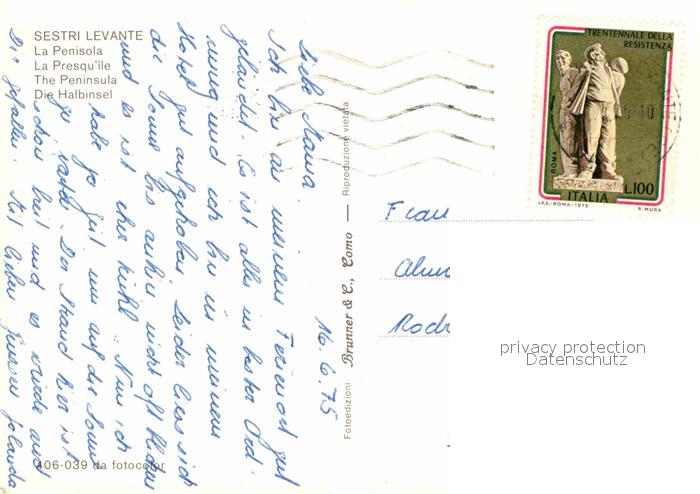 SESTRI LEVANTE
La Penisola
La Presqu'île
The Peninsula
Die Halbinsel
16.6.75
Liebe Mama.
Ich bin an meinem Ferienort gut
gelandet. Es ist alles in bester Ord-
nung und ich bin in meinem
Hotel gut aufgehoben. Leider liess sich
die Sonne bis anhin nicht oft blicken
und es ist eher kühl. Nun ich
habe ja Zeit, um auf die Sonne
zu warten. Der Strand hier ist
schön breit und es würde auch
Dir gefallen. Mit lieben Grüssen Jolanda
406-039 da fotocolor
Fotoedizioni Brunner & C., Como — Riproduzione vietata
TRENTENNALE DELLA
RESISTENZA
ROMA
L.100
ITALIA
I.P.S.-ROMA-1975
E. MURA
Frau
Rodr
privacy protection
Datenschutz